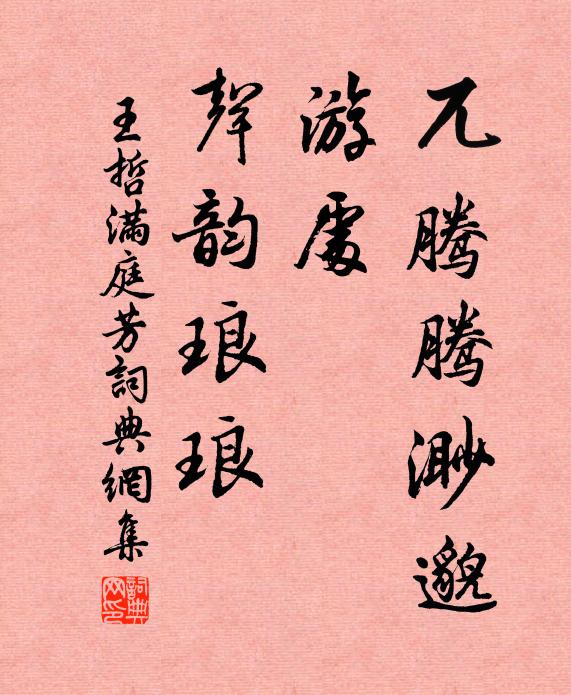 兀腾腾渺邈
游處
聲韵琅琅
王哲满庭芳詞典網集
詞典网印